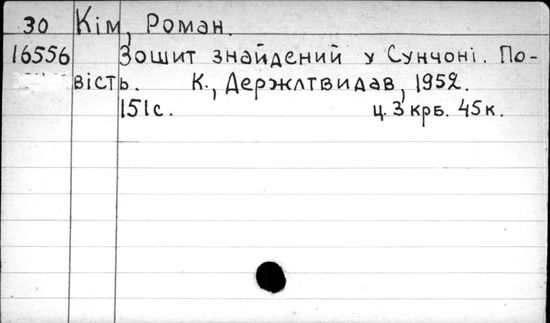 30 Кім, Роман.
16556 Зошит знайдений у Сунчоні. По-
вість. К., Держлтвидав, 1952.
151с. ц. 3 крб. 45к.